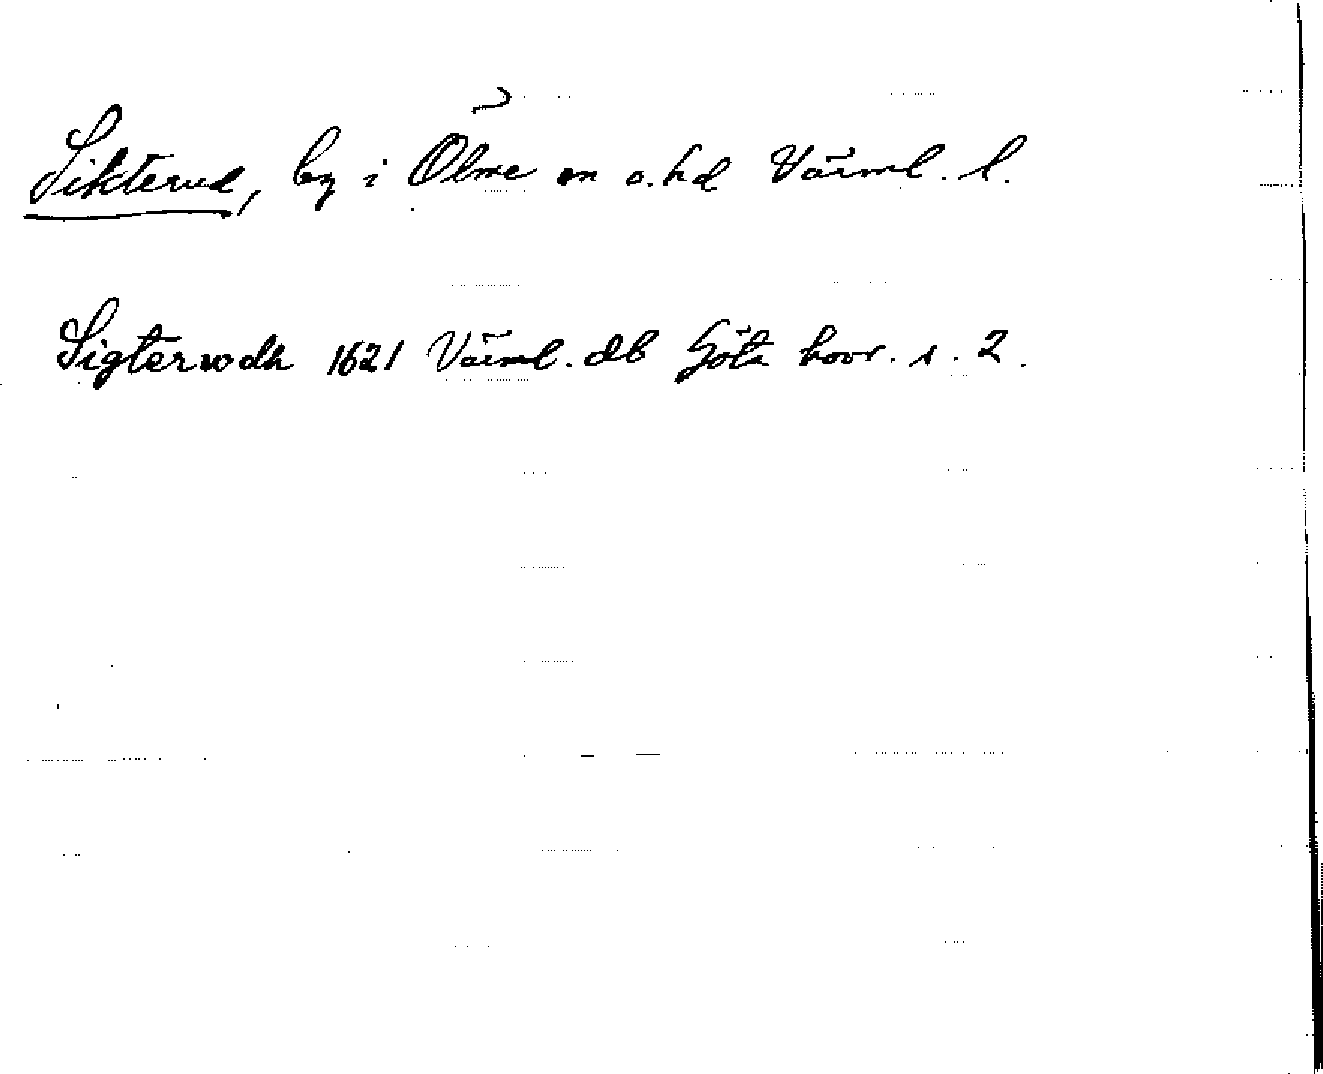 Sikterud, by i Ölme sn o. hd Värml. l.
Sigterwdh 1621 Värml. db Göta hovr. s. 2.